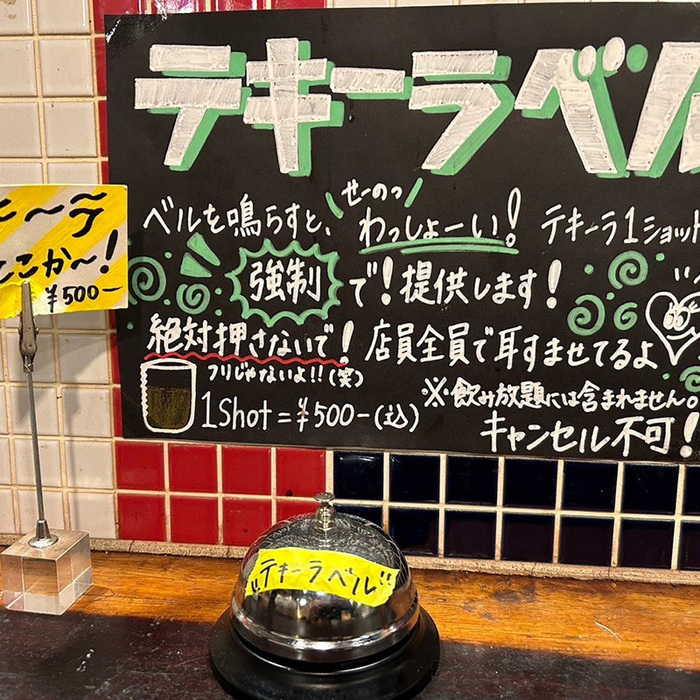 テキーラベル
ベルを鳴らすと、
せーのっ
わっしょーい! テキーラ1ショット
強制で!提供します!
絶対押さないで! 店員全員で耳すませてるよ
フリじゃないよ!!(笑)
1Shot=¥500-(込)
※飲み放題には含まれません。
キャンセル不可!
¥500-
"テキーラベル"